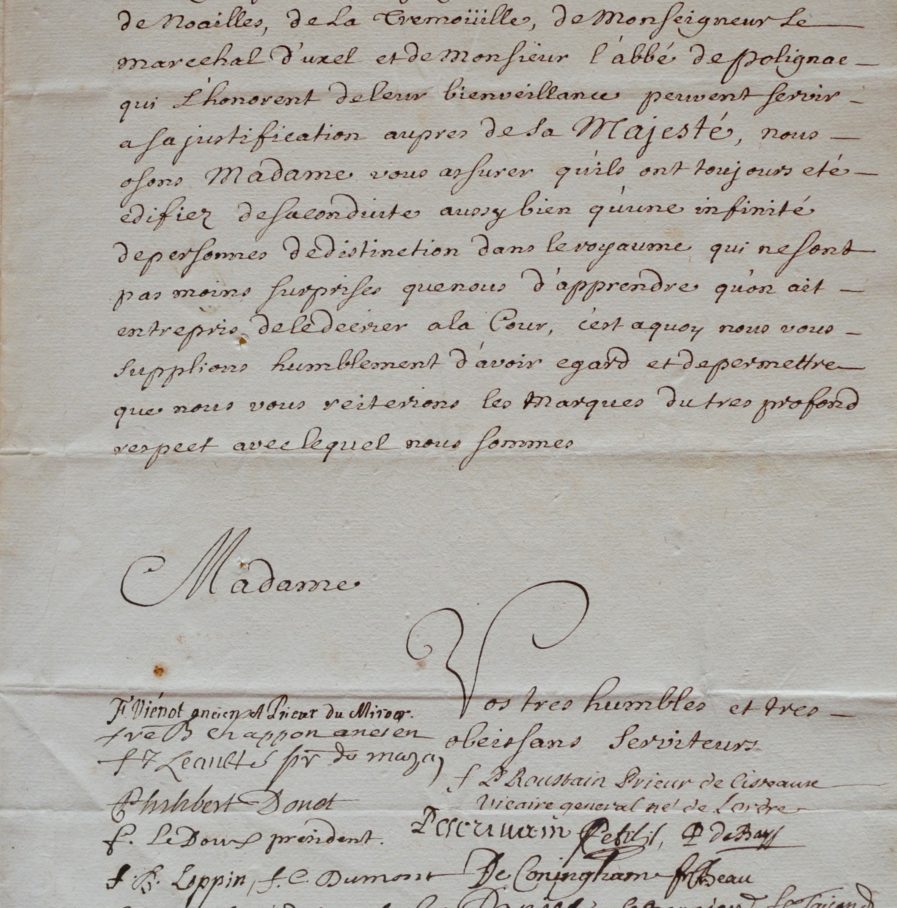 de Noailles, de La Tremoüille, de Monseigneur Le
Marechal d'uxel et de Monsieur l'abbé de polignac
qui L'honorent de leur bienveillance peuvent servir
a sa justification aupres de sa Majesté, nous
osons Madame vous assurer qu'ils ont toujours eté
édifiez de sa conduite aussy bien qu'une infinité
de personnes de distinction dans le royaume qui ne sont
pas moins surprises que nous d'apprendre qu'on ait
entrepris de le decrier a la Cour, c'est a quoy nous vous
supplions humblement d'avoir egard et de permettre
que nous vous reiterions les Marques du tres profond
respect avec lequel nous sommes
Madame
Vos tres humbles et tres
obeissans serviteurs
F Viénot ancien et Prieur du Miroer.
chappon ancien
pr de
Philibert Donot
f. Le Doux président.
f. B. Loppin, f. C. Dumont
f Roussain Prieur de Cisteaux
Vicaire general né de Lordre
Petit, de Bay
De Coningham